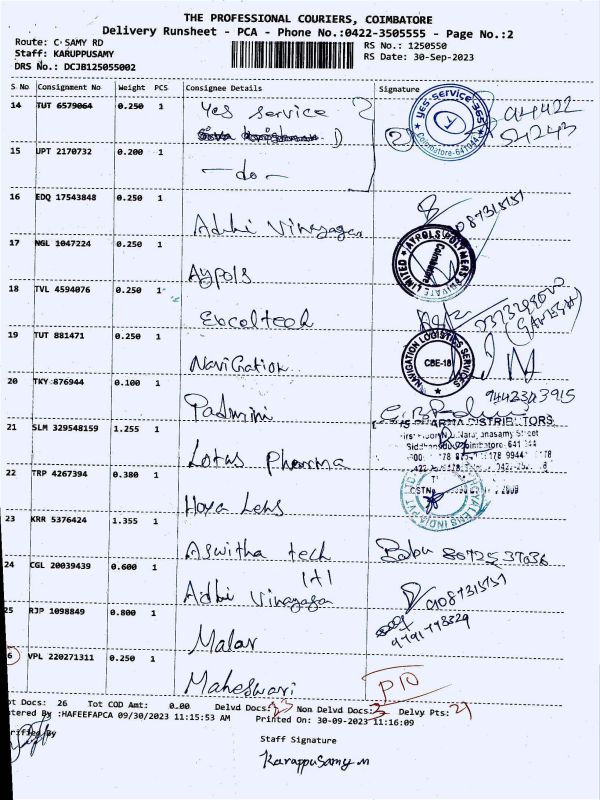 THE PROFESSIONAL COURIERS, COIMBATORE
Delivery Runsheet - PCA - Phone No.:0422-3505555 - Page No.:2
Route: C SAMY RD
RS No.: 1250550
Staff: KARUPPUSAMY
RS Date: 30-Sep-2023
DRS No.: DCJB125055002
S No Consignment No Weight PCS Consignee Details Signature
14 TUT 6579064 0.250 1 Yes Service
YES SERVICE 365
Coimbatore-641044
15 UPT 2170732 0.200 1 -do-
16 EDQ 17543848 0.250 1 Adhi Vinayaga
9087315151
17 NGL 1047224 0.250 1 Aypols
AYPOLS POLYMERS PRIVATE LIMITED
Coimbatore
18 TVL 4594076 0.250 1 Excel tech
(GANESH)
19 TUT 881471 0.250 1 Navigation
NAVIGATION LOGISTICS SERVICES
CBE-18
20 TKY 876944 0.100 1 Padmini
21 SLM 329548159 1.255 1 Lotus Pharma
PHARMA DISTRIBUTORS
22 TRP 4267394 0.380 1 Hoya Lens
HOYA LENS INDIA PVT LTD
23 KRR 5376424 1.355 1 Aswitha tech
Babu
24 CGL 20039439 0.600 1 Adhi Vinayaga 1+1
9087315151
25 RJP 1098849 0.800 1 Malar
26 VPL 220271311 0.250 1 Maheswari
PTO
Tot Docs: 26 Tot COD Amt: 0.00 Delvd Docs: 23 Non Delvd Docs: 3 Delvy Pts: 21
Entered By :HAFEEFAPCA 09/30/2023 11:15:53 AM Printed On: 30-09-2023 11:16:09
Verified By
Staff Signature
Karuppusamy M